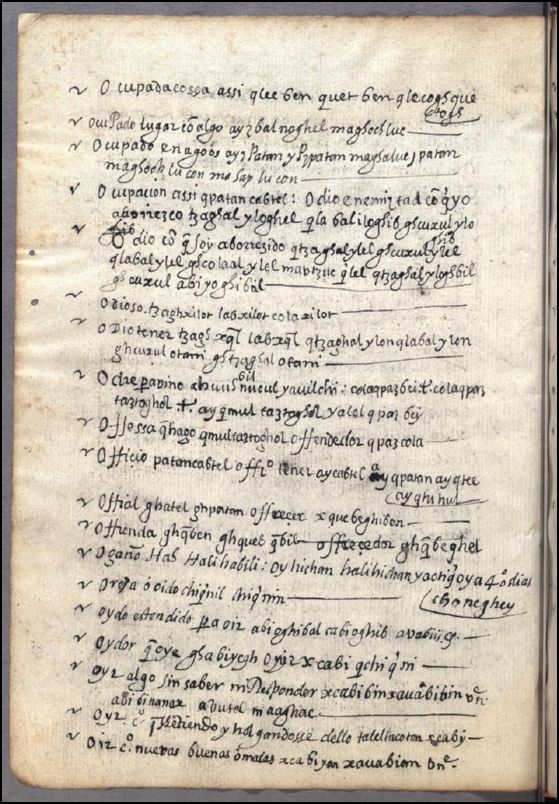 Ocupada cossa assi qlec ben quet ben qlecoghque
ctogh
ocuPado lugar cõ algo ayzbal noghel maghochluc
Ocupado e nagoõs ayz Patan y Pzpatan maghalucz patan
maghoch lu con mo sap lu con
Ocupacion assi qpatan cabtel : Odio enemiztad cõ q̃ yo
aborrezco tzaghal yloghel qla bal iloghib ghcuxulylo
ghib
Odio cõ q̃ soy aborrezido qtzaghalylel ghcuxulylel
qlabalylel ghcolaal ylel mavtzuc q̃lel qtzaghalyloghbil
ghcuxul abiyoghibil
Odioso. tzaghxilot labxilot colaxilot
Odio tener tzagh xq̃l labxq̃l qtzaghalylon qlabalylon
ghcuxul otani ghtzaghal otani
Odre pa vino
taztoghol ayq̃mul taztoghol yalel qpaz bey
Offessa q̃hago qmultaztoghol offendedor qpazcola
Officio patancabtel offi.o tener aycabtel ay qpatan ayqtec
ayqtuhul
Offial ghatel ghpatan offreçer xquebeghiben
Offrenda ghq̃ben ghquet q̃bil offreçedor ghq̃beghel
Ogaño. Hab Halihabili : oy hichan halihichan yactiq̃ oya 4.o dias
choneghey
Oreja ò oido chiq̃nil chiq̃nin
oydo estendido pa oir abioghibal cabioghib
oydor q̃ oye ghabiyegh Oyjr xcabi qchiq̃ni
oyr algo sin saber mi Respondor xcabibin xavabibin
abibinanax abutel maaghac
Oyr c.o q̃ Retiendo y holgandosse dello talellacotan xcaby
Oir c.o nuevas buenas o malas xcabiyan xavabiom